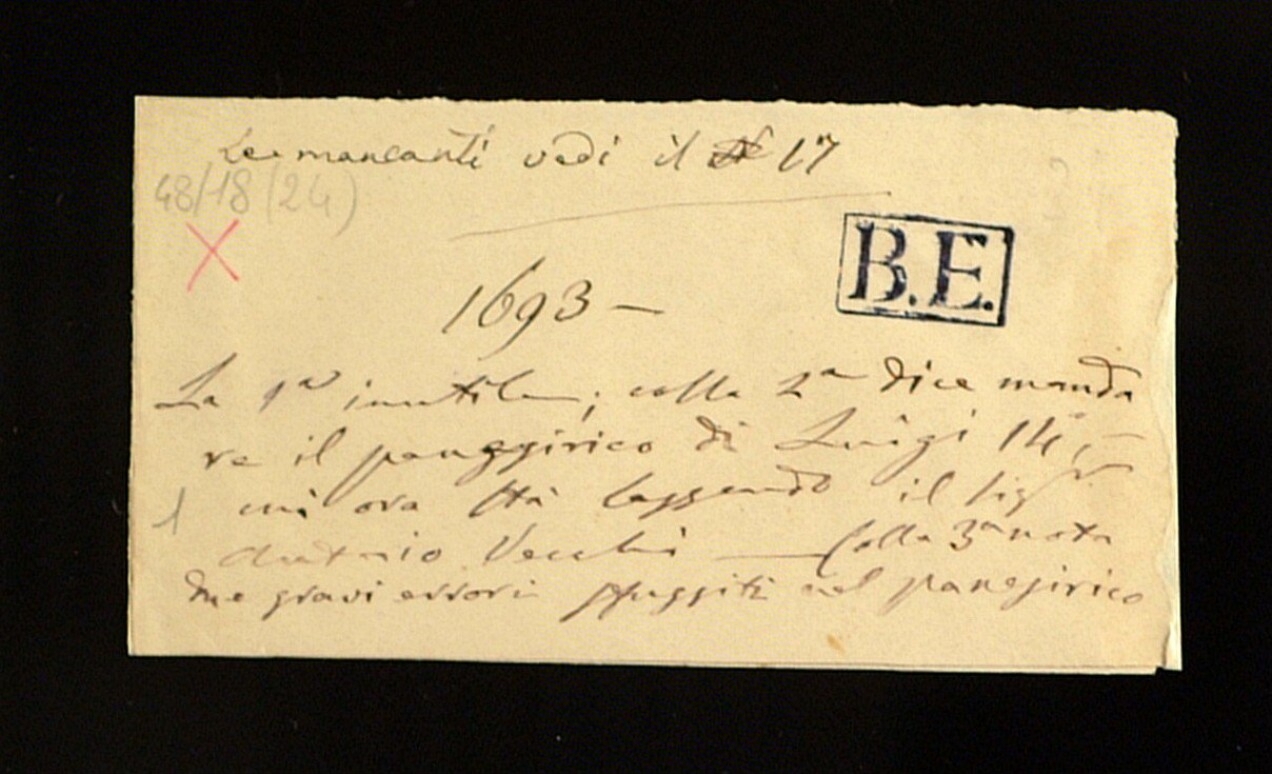 Le mancanti vedi il N 17
48/18 (24)
X
B.E.
1693 –
La 1ª inutile; colla 2ª dice manda
re il panegirico di Luigi 14°, –
1 ora sta leggendo il sigr
Antonio Vecchi — Colla 3ª nota
due gravi errori sfuggiti nel panegirico